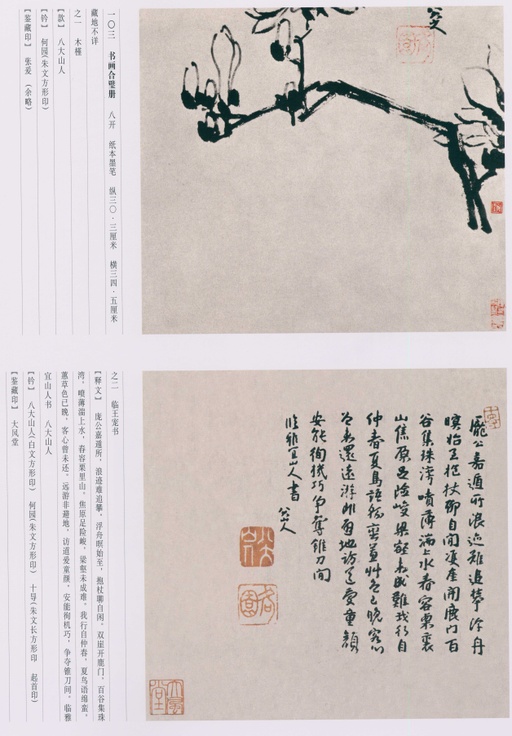 一〇三 书画合璧册 八开 纸本墨笔 纵三〇·三厘米 横三四·五厘米
藏地不详
之一 木槿
【款】 八大山人
【钤】 何园(朱文方形印)
【鉴藏印】 张爰 (余略)
龐公嘉遁所浪迹難追攀浮舟
暝始至抱杖聊自閒双崖開鹿门百
谷集珠湾喷薄湍上水舂容栗裏
山焦原足險峻梁壑未成難我行自
仲春夏鳥語綿蠻蕙艸色已晚客心
曾未還遠游非避地访道愛童顏
安能徇機巧争奪锥刀间
临雅宜山人書 八大山人
之二 临王宠书
【释文】 庞公嘉遁所,浪迹难追攀,浮舟暝始至,抱杖聊自闲。双崖开鹿门,百谷集珠
湾,喷薄湍上水,舂容栗里山。焦原足险峻,梁壑未成难。我行自仲春,夏鸟语绵蛮。
蕙草色已晚,客心曾未还。远游非避地,访道爱童颜。安能徇机巧,争夺锥刀间。临雅
宜山人书 八大山人
【钤】 八大山人(白文方形印) 何园(朱文方形印) 十导(朱文长方形印 起首印)
【鉴藏印】 大风堂